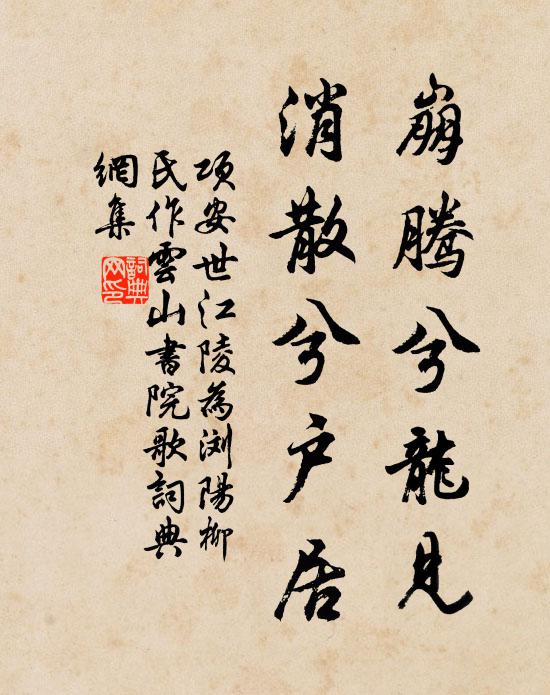 崩騰兮龍見
消散兮户居
項安世江陵為浏陽柳
氏作雲山書院歌詞典
網集
詞典網印